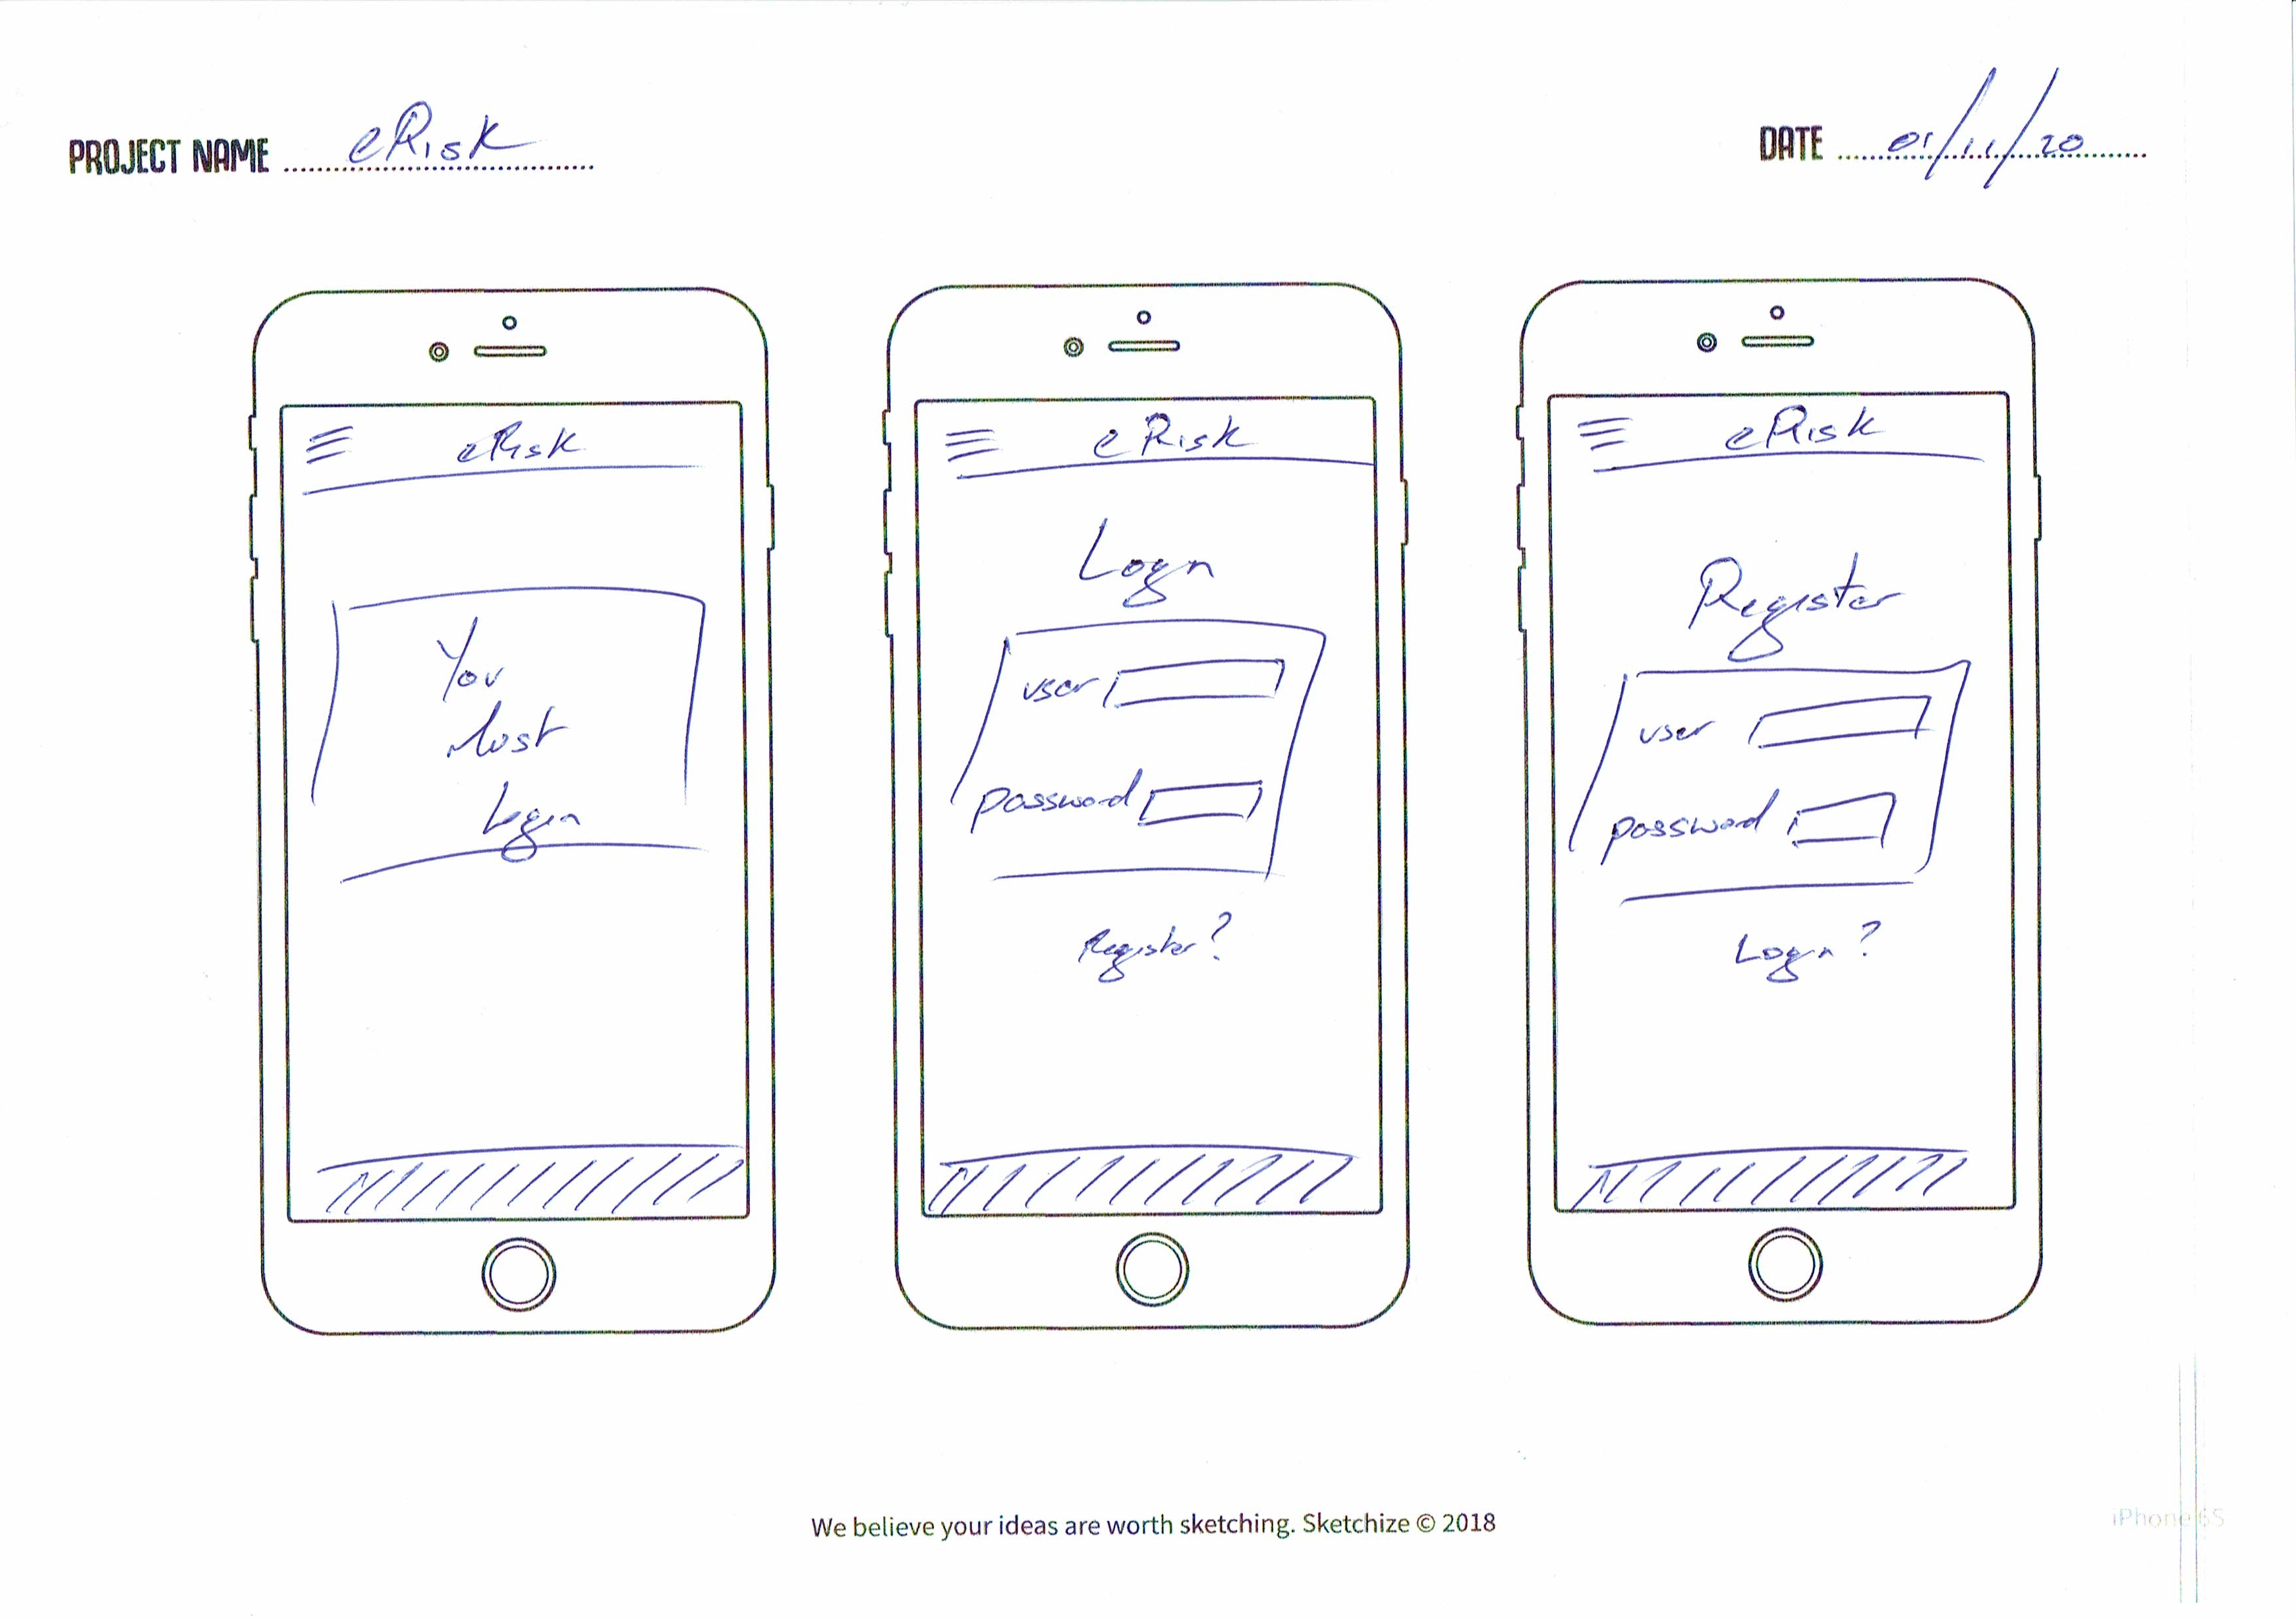 PROJECT NAME eRisk
DATE 01/11/20
eRisk
You
Must
Login
eRisk
Login
user
password
Register?
eRisk
Register
user
password
Login?
We believe your ideas are worth sketching. Sketchize © 2018
iPhone 6S